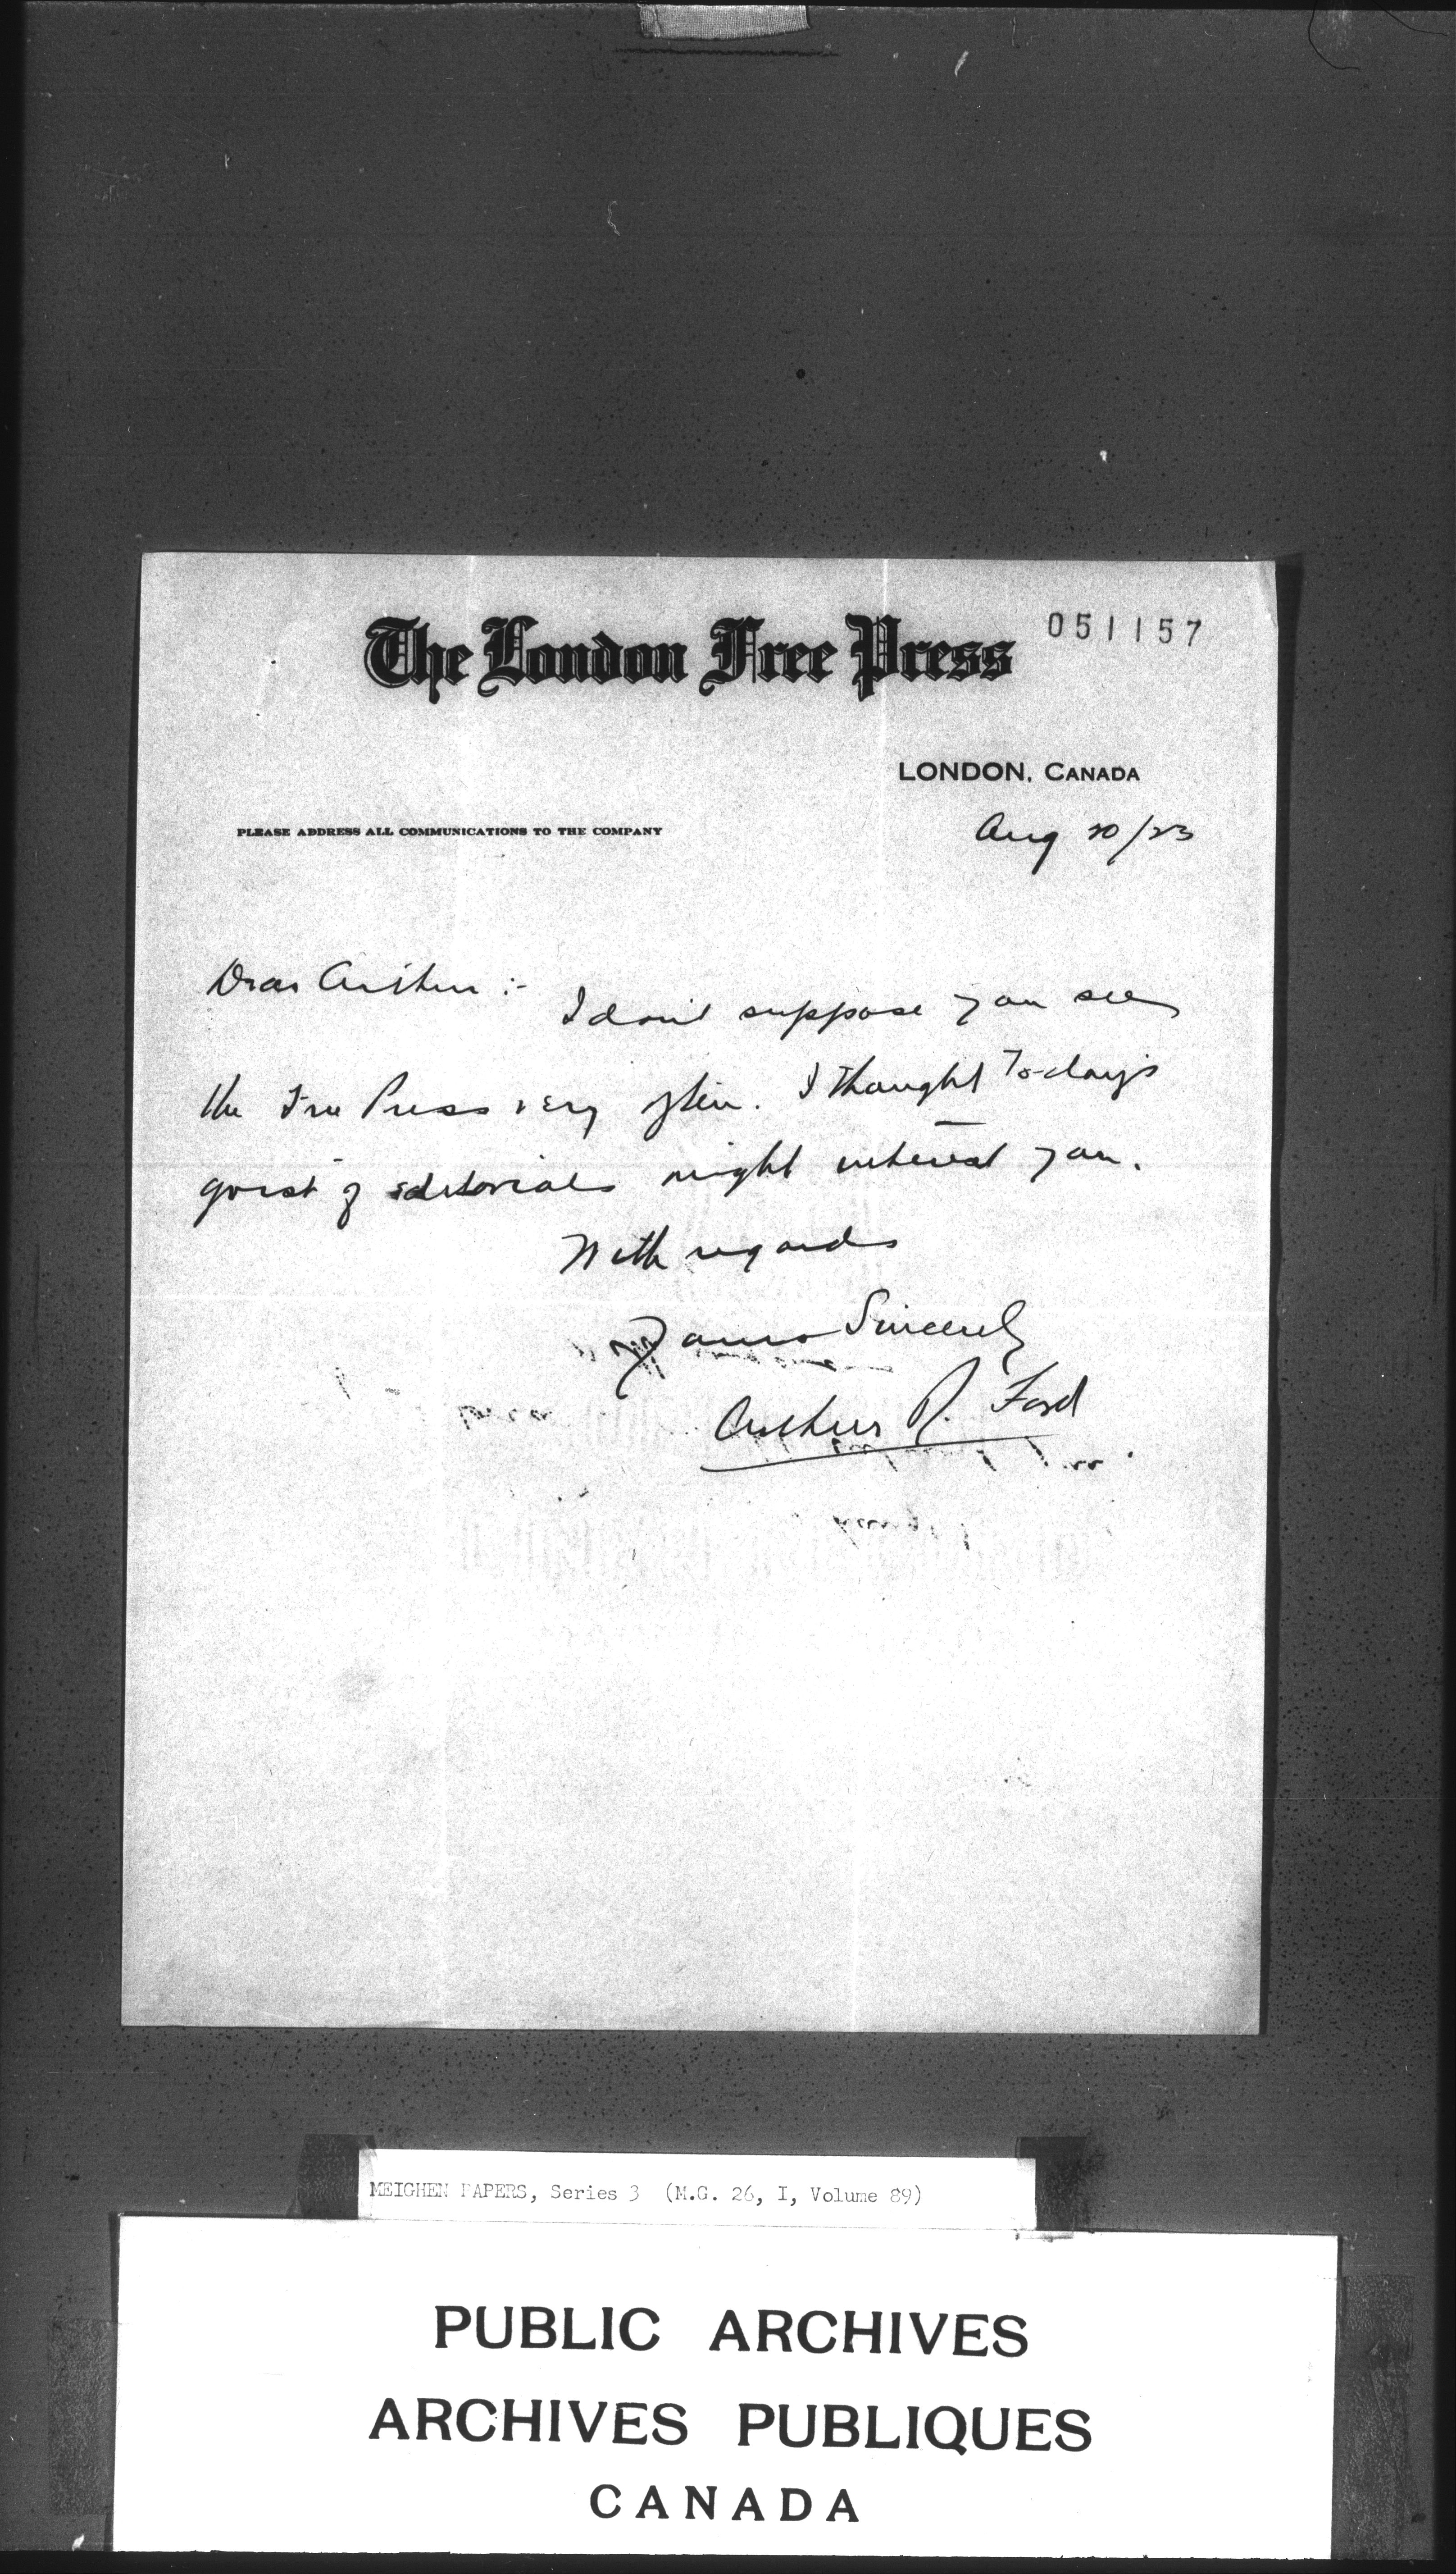 The London Free Press
051157
LONDON, CANADA
PLEASE ADDRESS ALL COMMUNICATIONS TO THE COMPANY
Aug 20/23
Dear Arthur :-
I don't suppose you see
the Free Press very often. I thought To-day's
grist of editorials might interest you.
With regards
Yours Sincerely
Arthur R. Ford
MEIGHEN PAPERS, Series 3 (M.G. 26, I, Volume 89)
PUBLIC ARCHIVES
ARCHIVES PUBLIQUES
CANADA